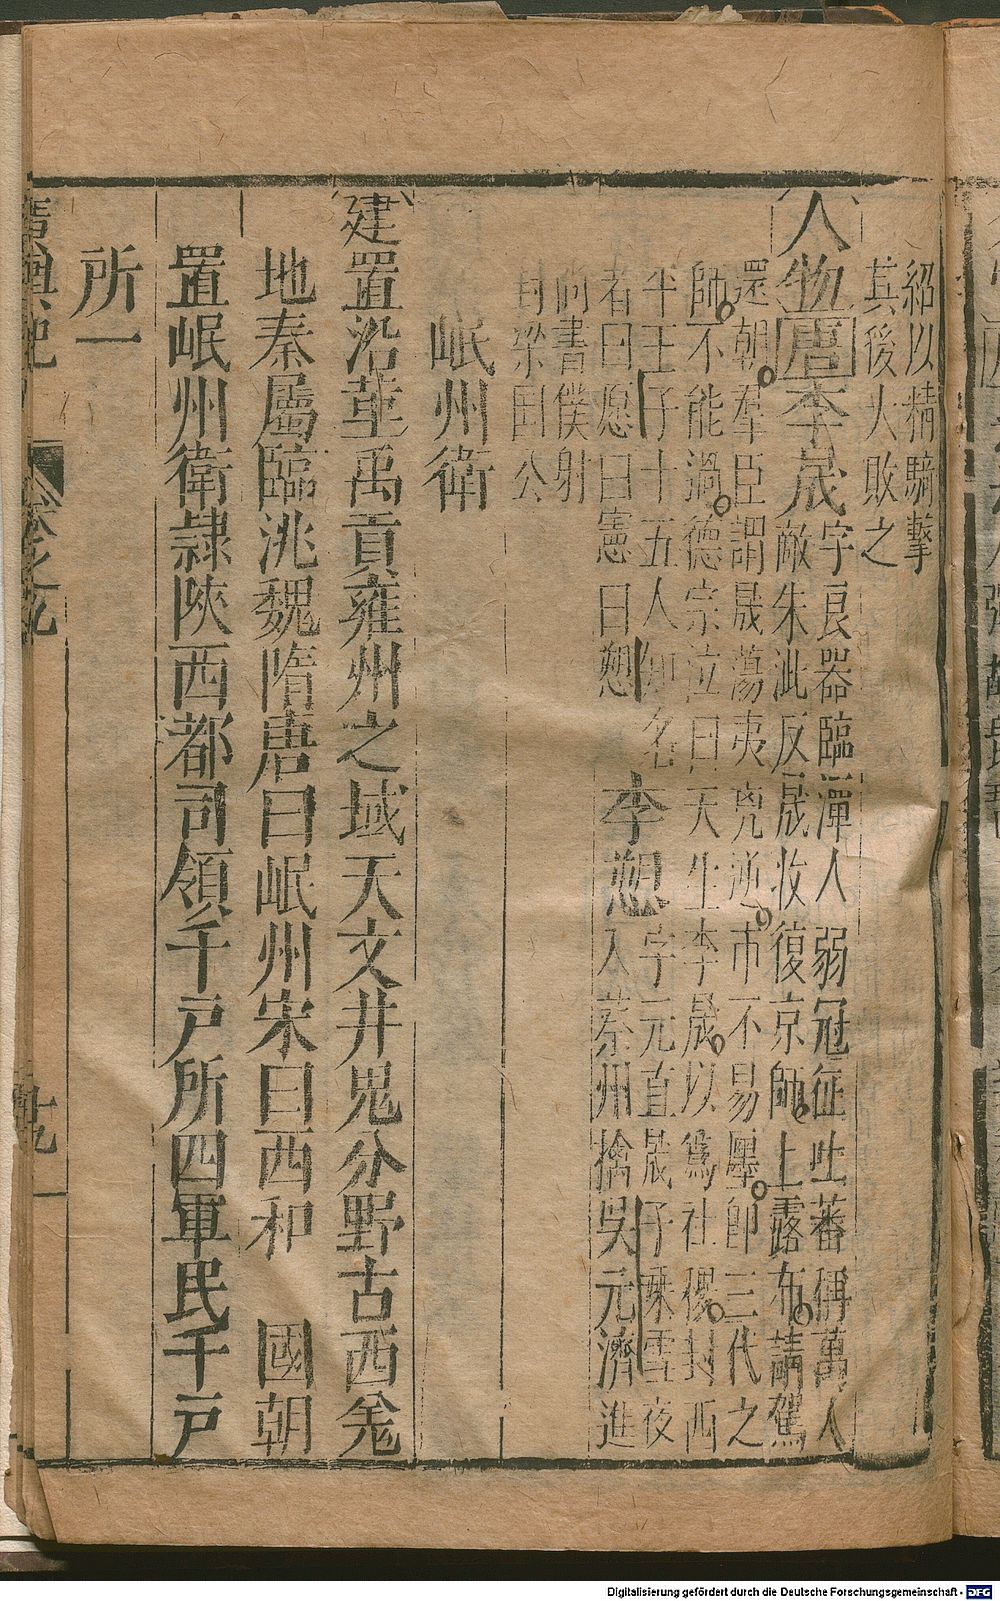 紹以精騎擊
其後大敗之
人物唐李晟字良器臨潭人弱冠征吐蕃稱萬人
敵朱泚反晟收復京師上露布請駕
還朝羣臣謂晟蕩夷兇逆市不易㕓師三代之
師不能過德宗泣曰天生李晟以爲社稷封西
平王子十五人知名
者曰愿曰憲曰愬
李愬字元直晟子乘雪夜
入蔡州擒吳元濟進
尚書僕射
封梁國公
岷州衛
建置沿革禹貢雍州之域天文井鬼分野古西羌
地秦屬臨洮魏隋唐曰岷州宋曰西和 國朝
置岷州衛隷陝西都司領千戸所四軍民千戸
所一
廣輿記 卷之九 十九
Digitalisierung gefördert durch die Deutsche Forschungsgemeinschaft - DFG